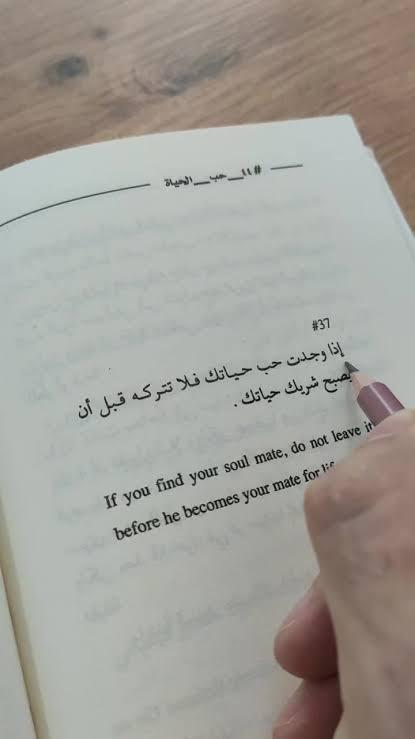 #٤٤__حب__الحياة
#37
إذا وجدت حب حياتك فلا تتركه قبل أن
يصبح شريك حياتك .
If you find your soul mate, do not leave it
before he becomes your mate for